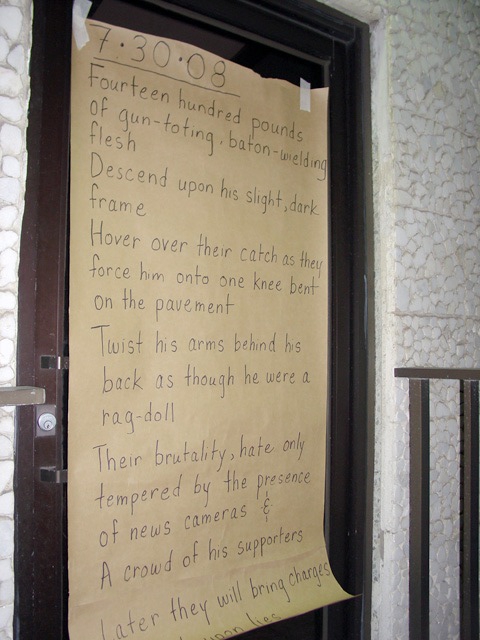 7.30.08
Fourteen hundred pounds
of gun-toting, baton-wielding
flesh
Descend upon his slight, dark
frame
Hover over their catch as they
force him onto one knee bent
on the pavement
Twist his arms behind his
back as though he were a
rag-doll
Their brutality, hate only
tempered by the presence
of news cameras &
A crowd of his supporters
Later they will bring charges
upon lies